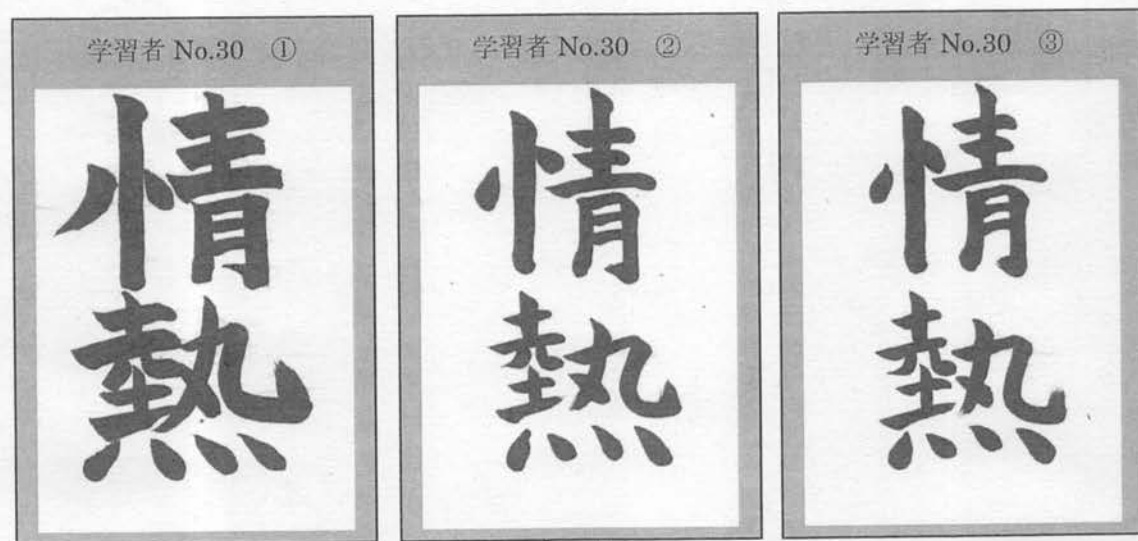 学習者 No.30 ①
情
熱
学習者 No.30 ②
情
熱
学習者 No.30 ③
情
熱